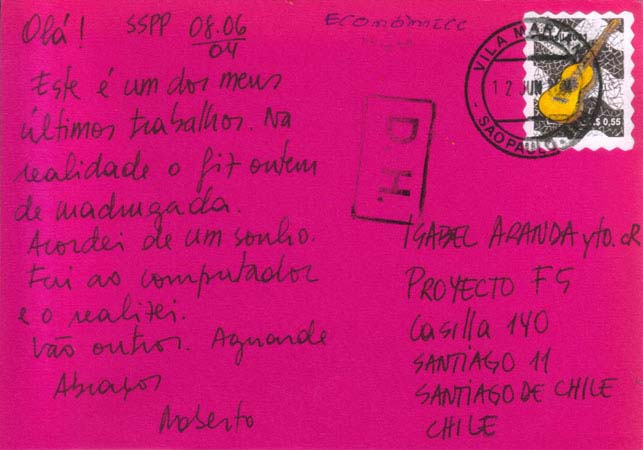 Olá! SSPP 08.06
04
Este é um dos meus
últimos trabalhos. Na
realidade o fiz ontem
de madrugada.
Acordei de um sonho.
Fui ao computador
e o realizei.
Vão outros. Aguarde
Abraços
Roberto
Econômico
VILA MARIAN
12 JUN
SAO PAULO
0,55
D.H.
ISABEL ARANDA yto. cR
PROYECTO FS
Casilla 140
SANTIAGO 11
SANTIAGO DE CHILE
CHILE